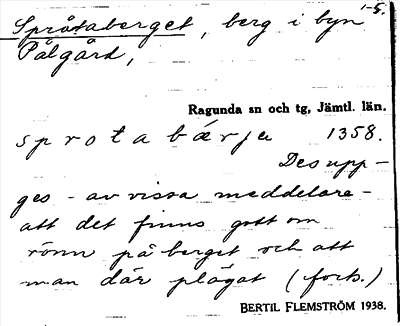 1-5.
Språtaberget, berg i byn
Pålgård,
Ragunda sn och tg, Jämtl. län.
sprotabærje 1358.
Des upp-
ges - av vissa meddelare -
att det finns gott om
rönn på berget och att
man där plågat (forts.)
BERTIL FLEMSTRÖM 1938.